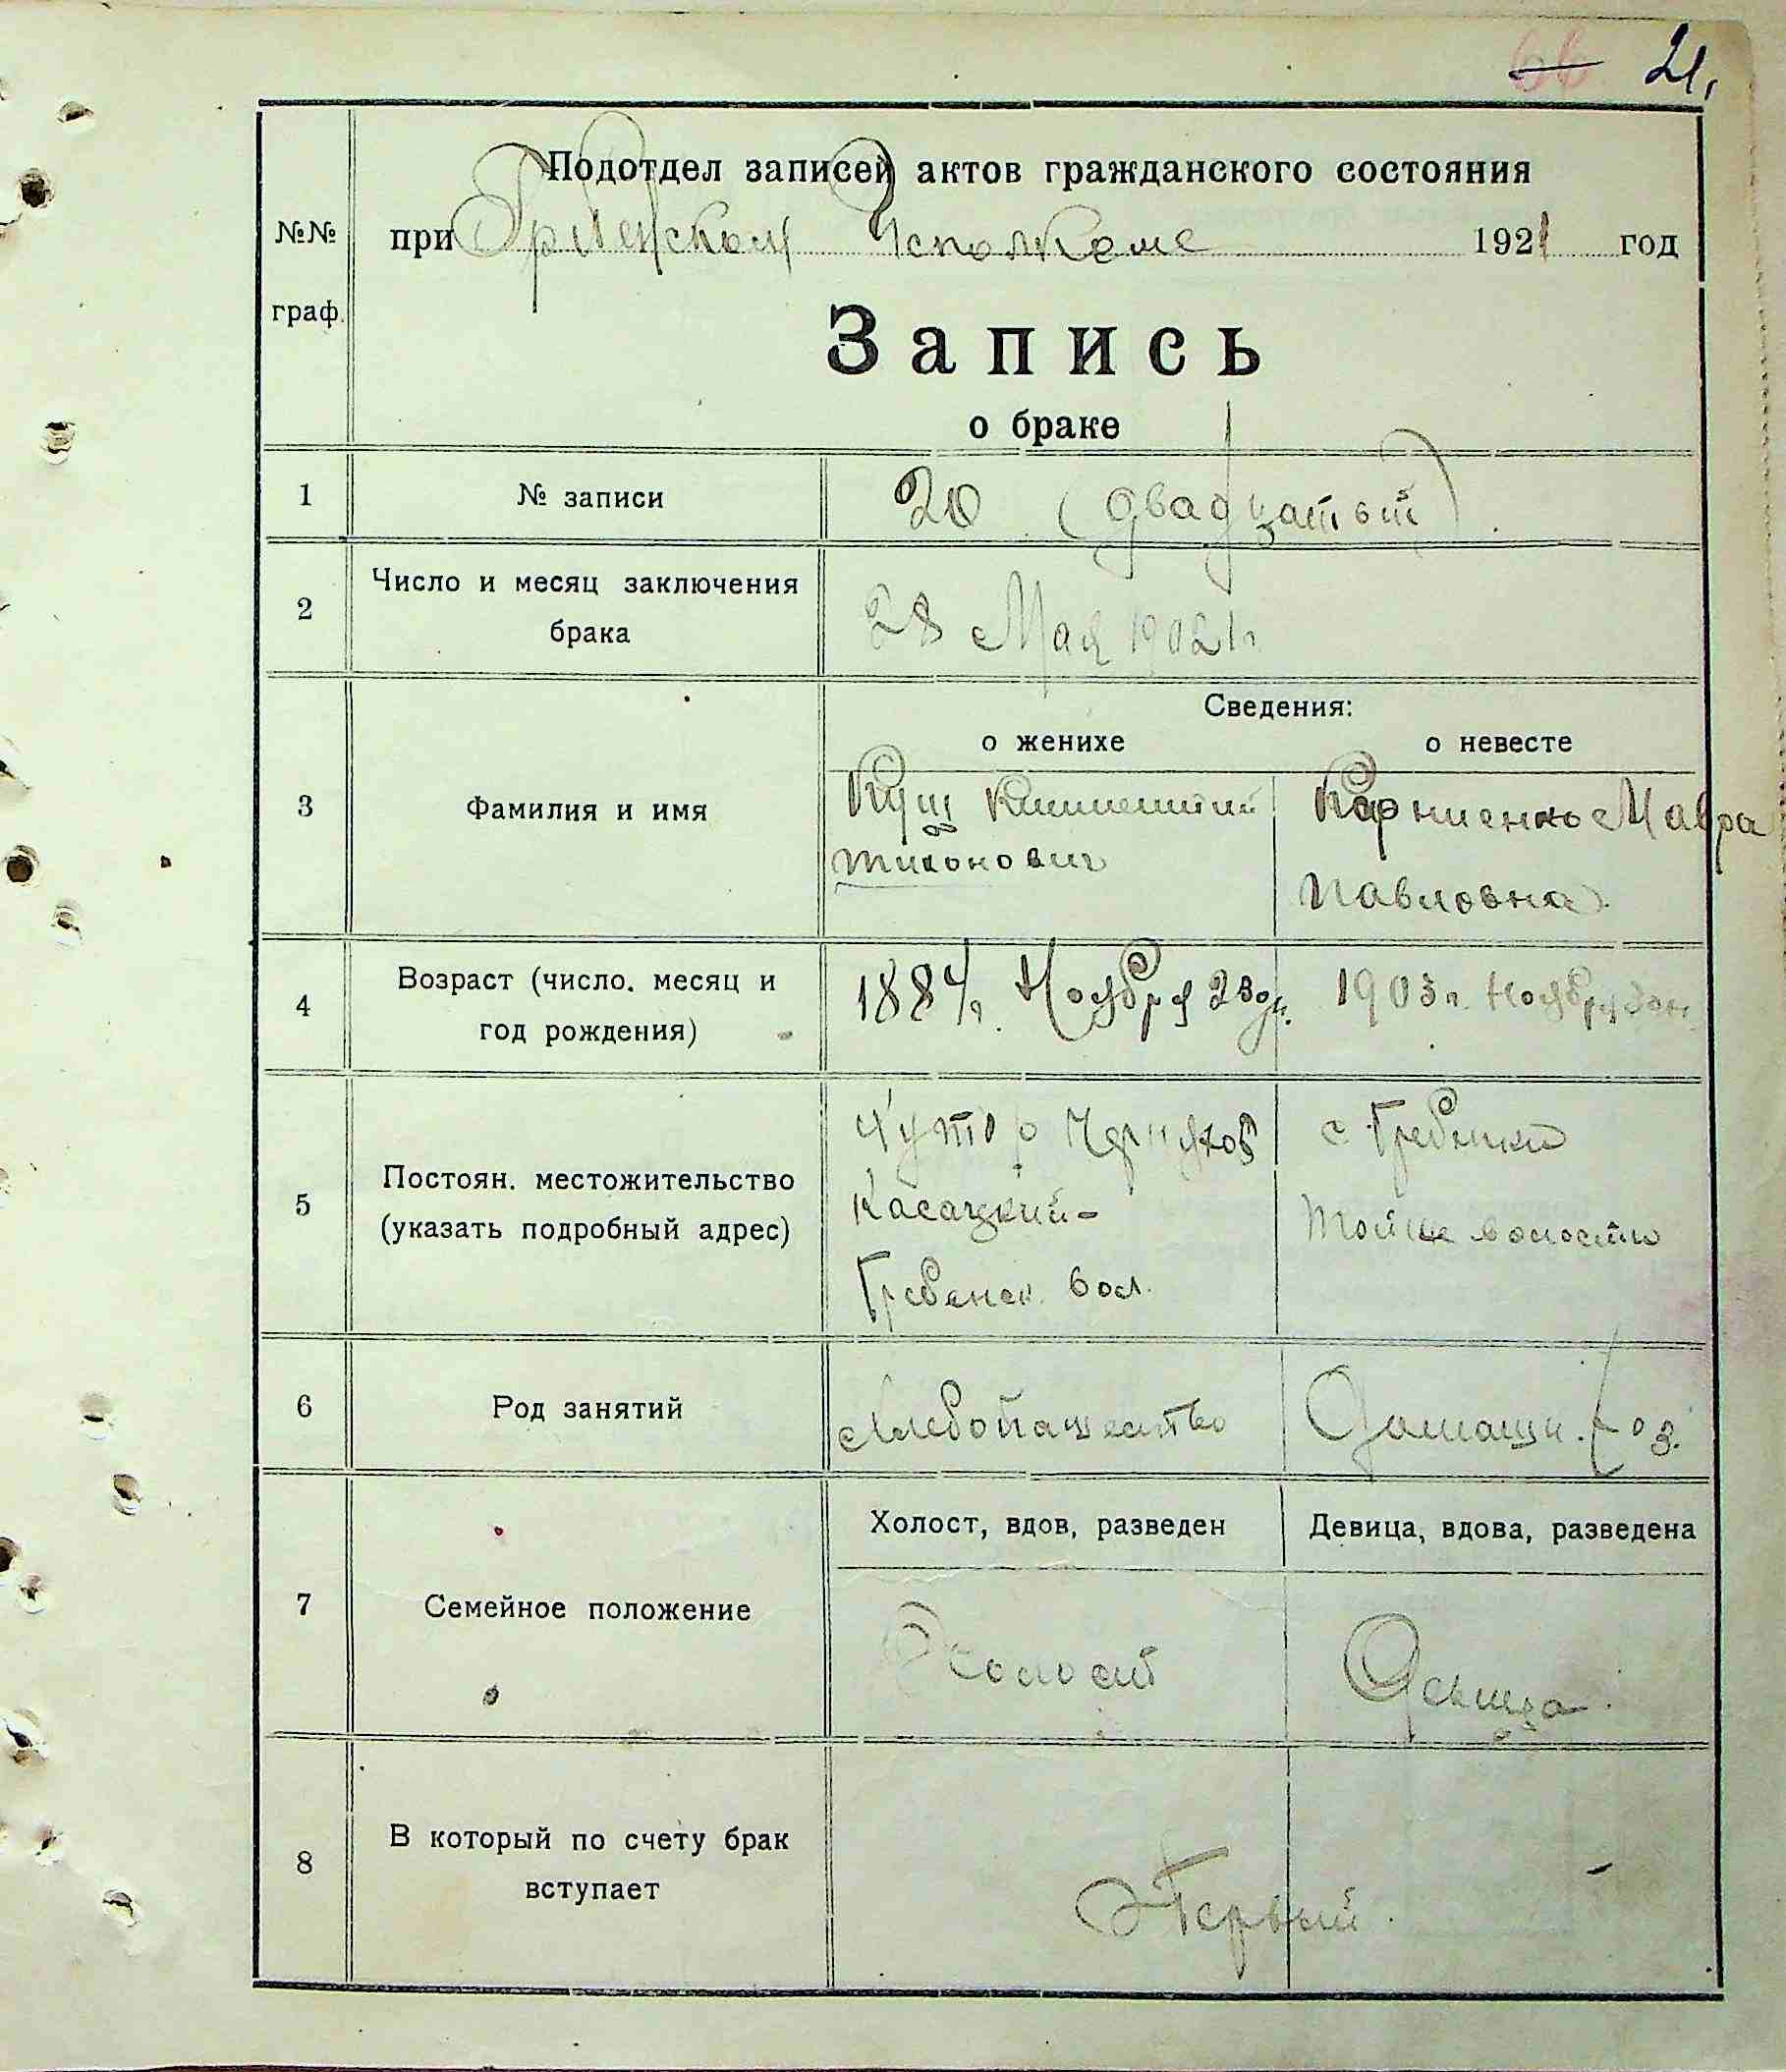 21,
Подотдел записей актов гражданского состояния
№№
при Исполкоме 1921 год
граф.
Запись
о браке
1 № записи 20 (двадцатый)
2 Число и месяц заключения
брака
28 Мая 1921 г.
Сведения:
о женихе о невесте
3 Фамилия и имя
Кущ Климентий Карниенко Мавра
тихонович Павловна
4 Возраст (число, месяц и
год рождения)
1884 г. Ноября 23 дн. 1903 г. Ноября
5 Постоян. местожительство
(указать подробный адрес)
Хутор с. Гребенки
Касацкий- тойже волости
Гребенск. вол.
6 Род занятий Хлебопашество Домашн. хоз.
Холост, вдов, разведен Девица, вдова, разведена
7 Семейное положение
Холост Девица.
8 В который по счету брак
вступает
Первый.